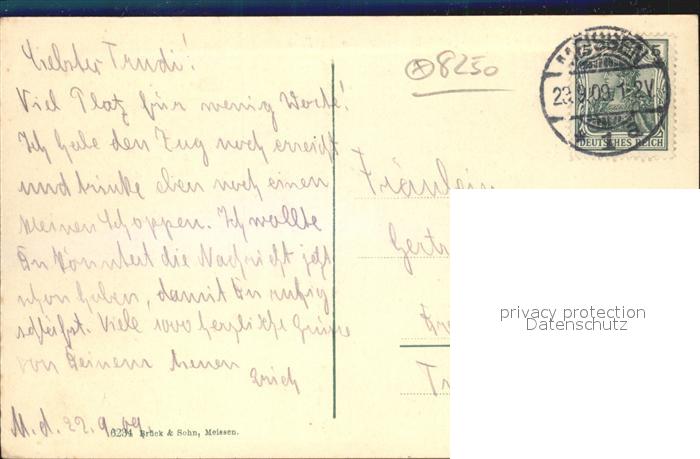 Liebster Trudi!
Viel Platz für wenig Worte!
Ich habe den Zug noch erreicht
und trinke eben noch einen
kleinen Schoppen. Ich wollte
Du könntest die Nachricht jetzt
schon haben, damit Du ruhig
schläfst. Viele 1000 herzliche Grüsse
von Deinem treuen
Erich
M. d. 22.9.09.
6234 Brück & Sohn, Meissen.
8250
MEISSEN
23.9.09.1-2V.
* 1 a
5
DEUTSCHES REICH
Fräulein
Gertr
privacy protection
Datenschutz